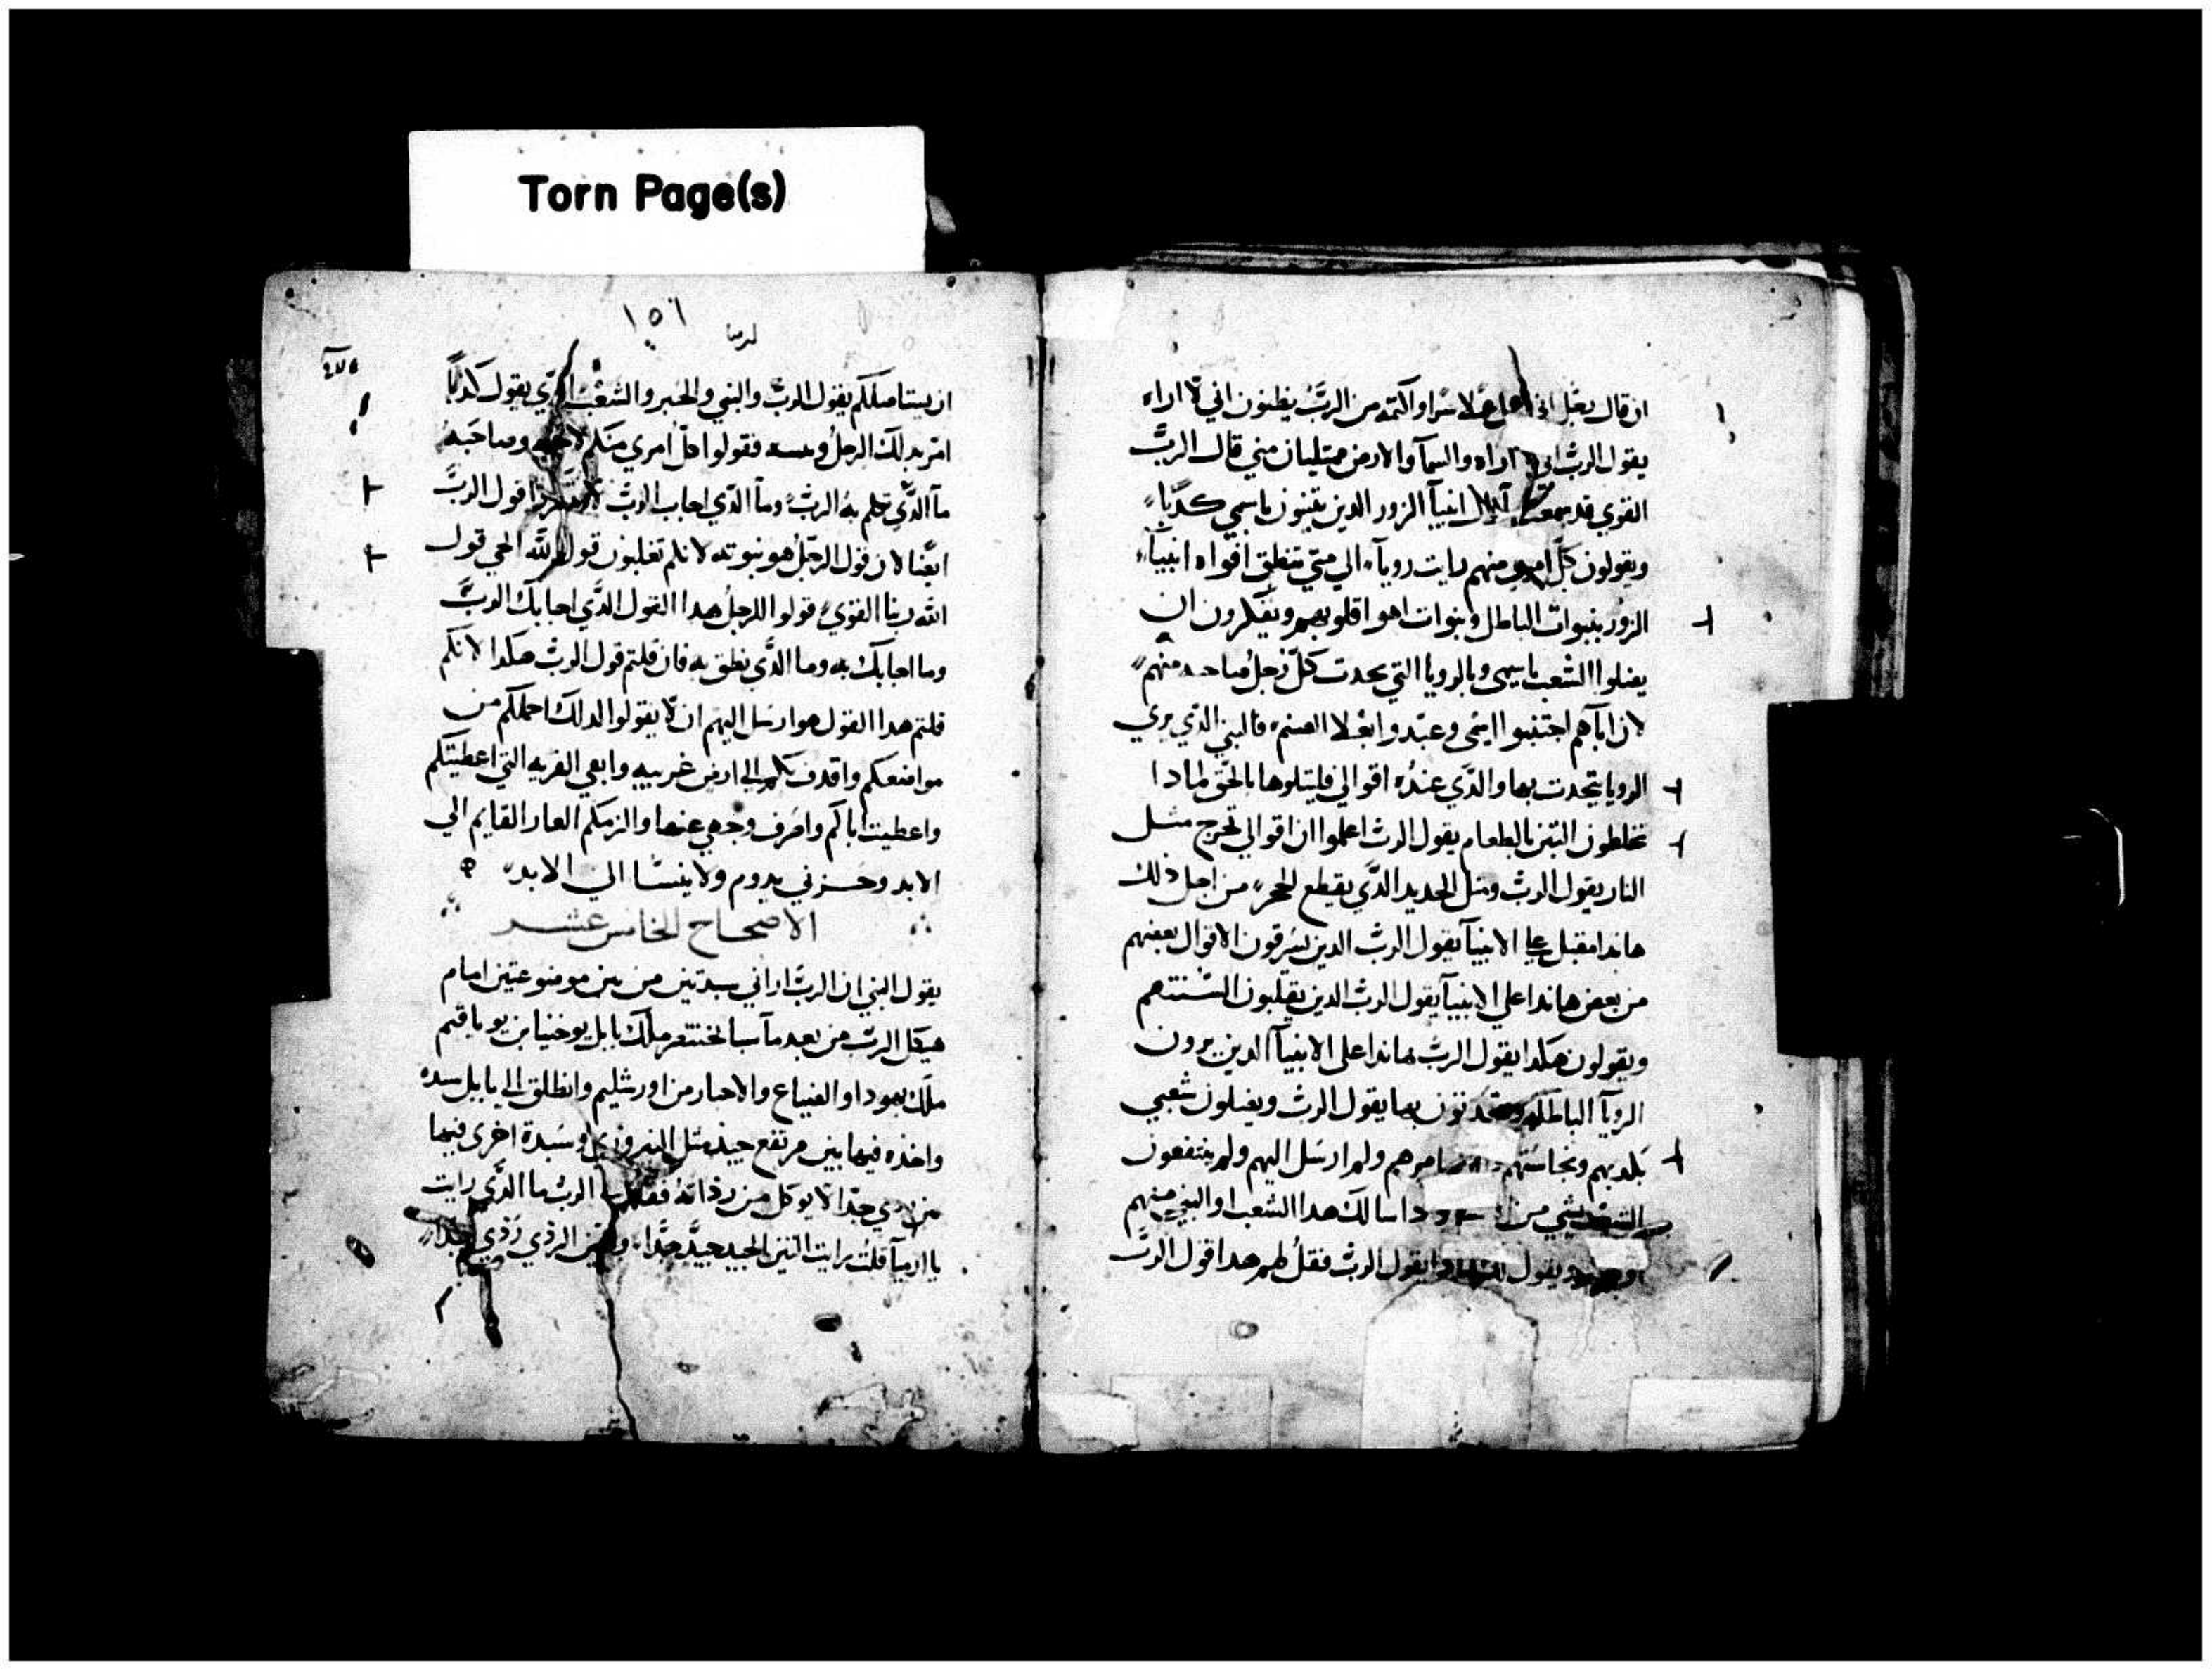 Torn Page(s)
ان قال بعل اني لا سرا واكتمه من الربّ يظنون اني لا اراه
يقول الربّ اني اراه والسمآ والارض ممتليان مني قال الربّ
القوي قد سمعت انبيآ الزور الدين يتنبون باسمي كدبًا
ويقولون كلّ امري منهم رايت رويآ الي متي تنطق افواه انبيآ
الزور بنبوات الباطل ونبوات اهوا قلوبهم ويفكرون ان
يضلوا الشعب باسمي وبالرويا التي يحدت كلّ رجل صاحبه منهم
لان ابآهم اجتنبوا اسمي وعبدوا بعلا الصنم فالنبي الذي يري
الرويا يتحدت بها والذي عنده اقوالي فليتلوها بالحق لمادا
تخلطون التبن بالطعام يقول الربّ اعلموا ان اقوالي تخرج متل
النار يقول الربّ ومتل الحديد الذي يقطع الحجر من اجل ذلك
هاندا مقبل علي الانبيآ يقول الربّ الدين يسرقون الاقوال بعضهم
من بعض هاندا علي الانبيآ يقول الربّ الدين يقلبون السنتهم
ويقولون هكدا يقول الربّ هاندا علي الانبيآ الدين يرون
الرويآ الباطله ويتحدتون بها يقول الربّ ويضلون شعبي
بكدبهم ونجاستهم امرهم ولم ارسل اليهم ولم ينتفعون
بشي من اسالك هدا الشعب او النبي منهم
يقول يقول الربّ فقل لهم هدا قول الربّ
١٥٦
ارميا
ان يستاصلكم يقول الربّ والنبي والحبر والشعب الذي يقول كدبًا
امر بدلك الرجل وبيته فقولوا كل امري منكم لاخيه وصاحبه
ما الذي تكلم به الربّ وما الذي اجاب الربّ قول الربّ
ايضا لان قول الرجل هو نبوته لانكم تغلبون قول الله الحي قول
الله ربنا القوي قولوا للرجل هدا القول الذي اجابك الربّ
وما اجابك به وما الذي نطق به فان قلتم قول الربّ هكدا لانكم
قلتم هدا القول هو ارسل اليهم ان لا يقولوا لدلك احملكم من
مواضعكم واقدفكم الي ارض غريبه وابغي القريه التي اعطيتكم
واعطيت اباكم واصرف وجهي عنها والزمكم العار القايم الي
الابد وحزني يدوم ولا ينسا الي الابد
الاصحاح الخامس عشر
يقول النبي ان الربّ اراني سبدتين من تين موضوعتين امام
هيكل الربّ من بعد ما سبا بختنصر ملك بابل يوخنيا بن يوياقيم
ملك يهودا والصناع والاحبار من اورشليم وانطلق الي بابل سبده
واخذه فيها تين مرتفع جيد متل وسبدة اخري فيها
تين ردي جدّا لا يوكل من رداته فقال الربّ ما الذي رايت
يا ارميآ قلت رايت التين الجيد جيّد جدّا والتين الردي ردي جدّا